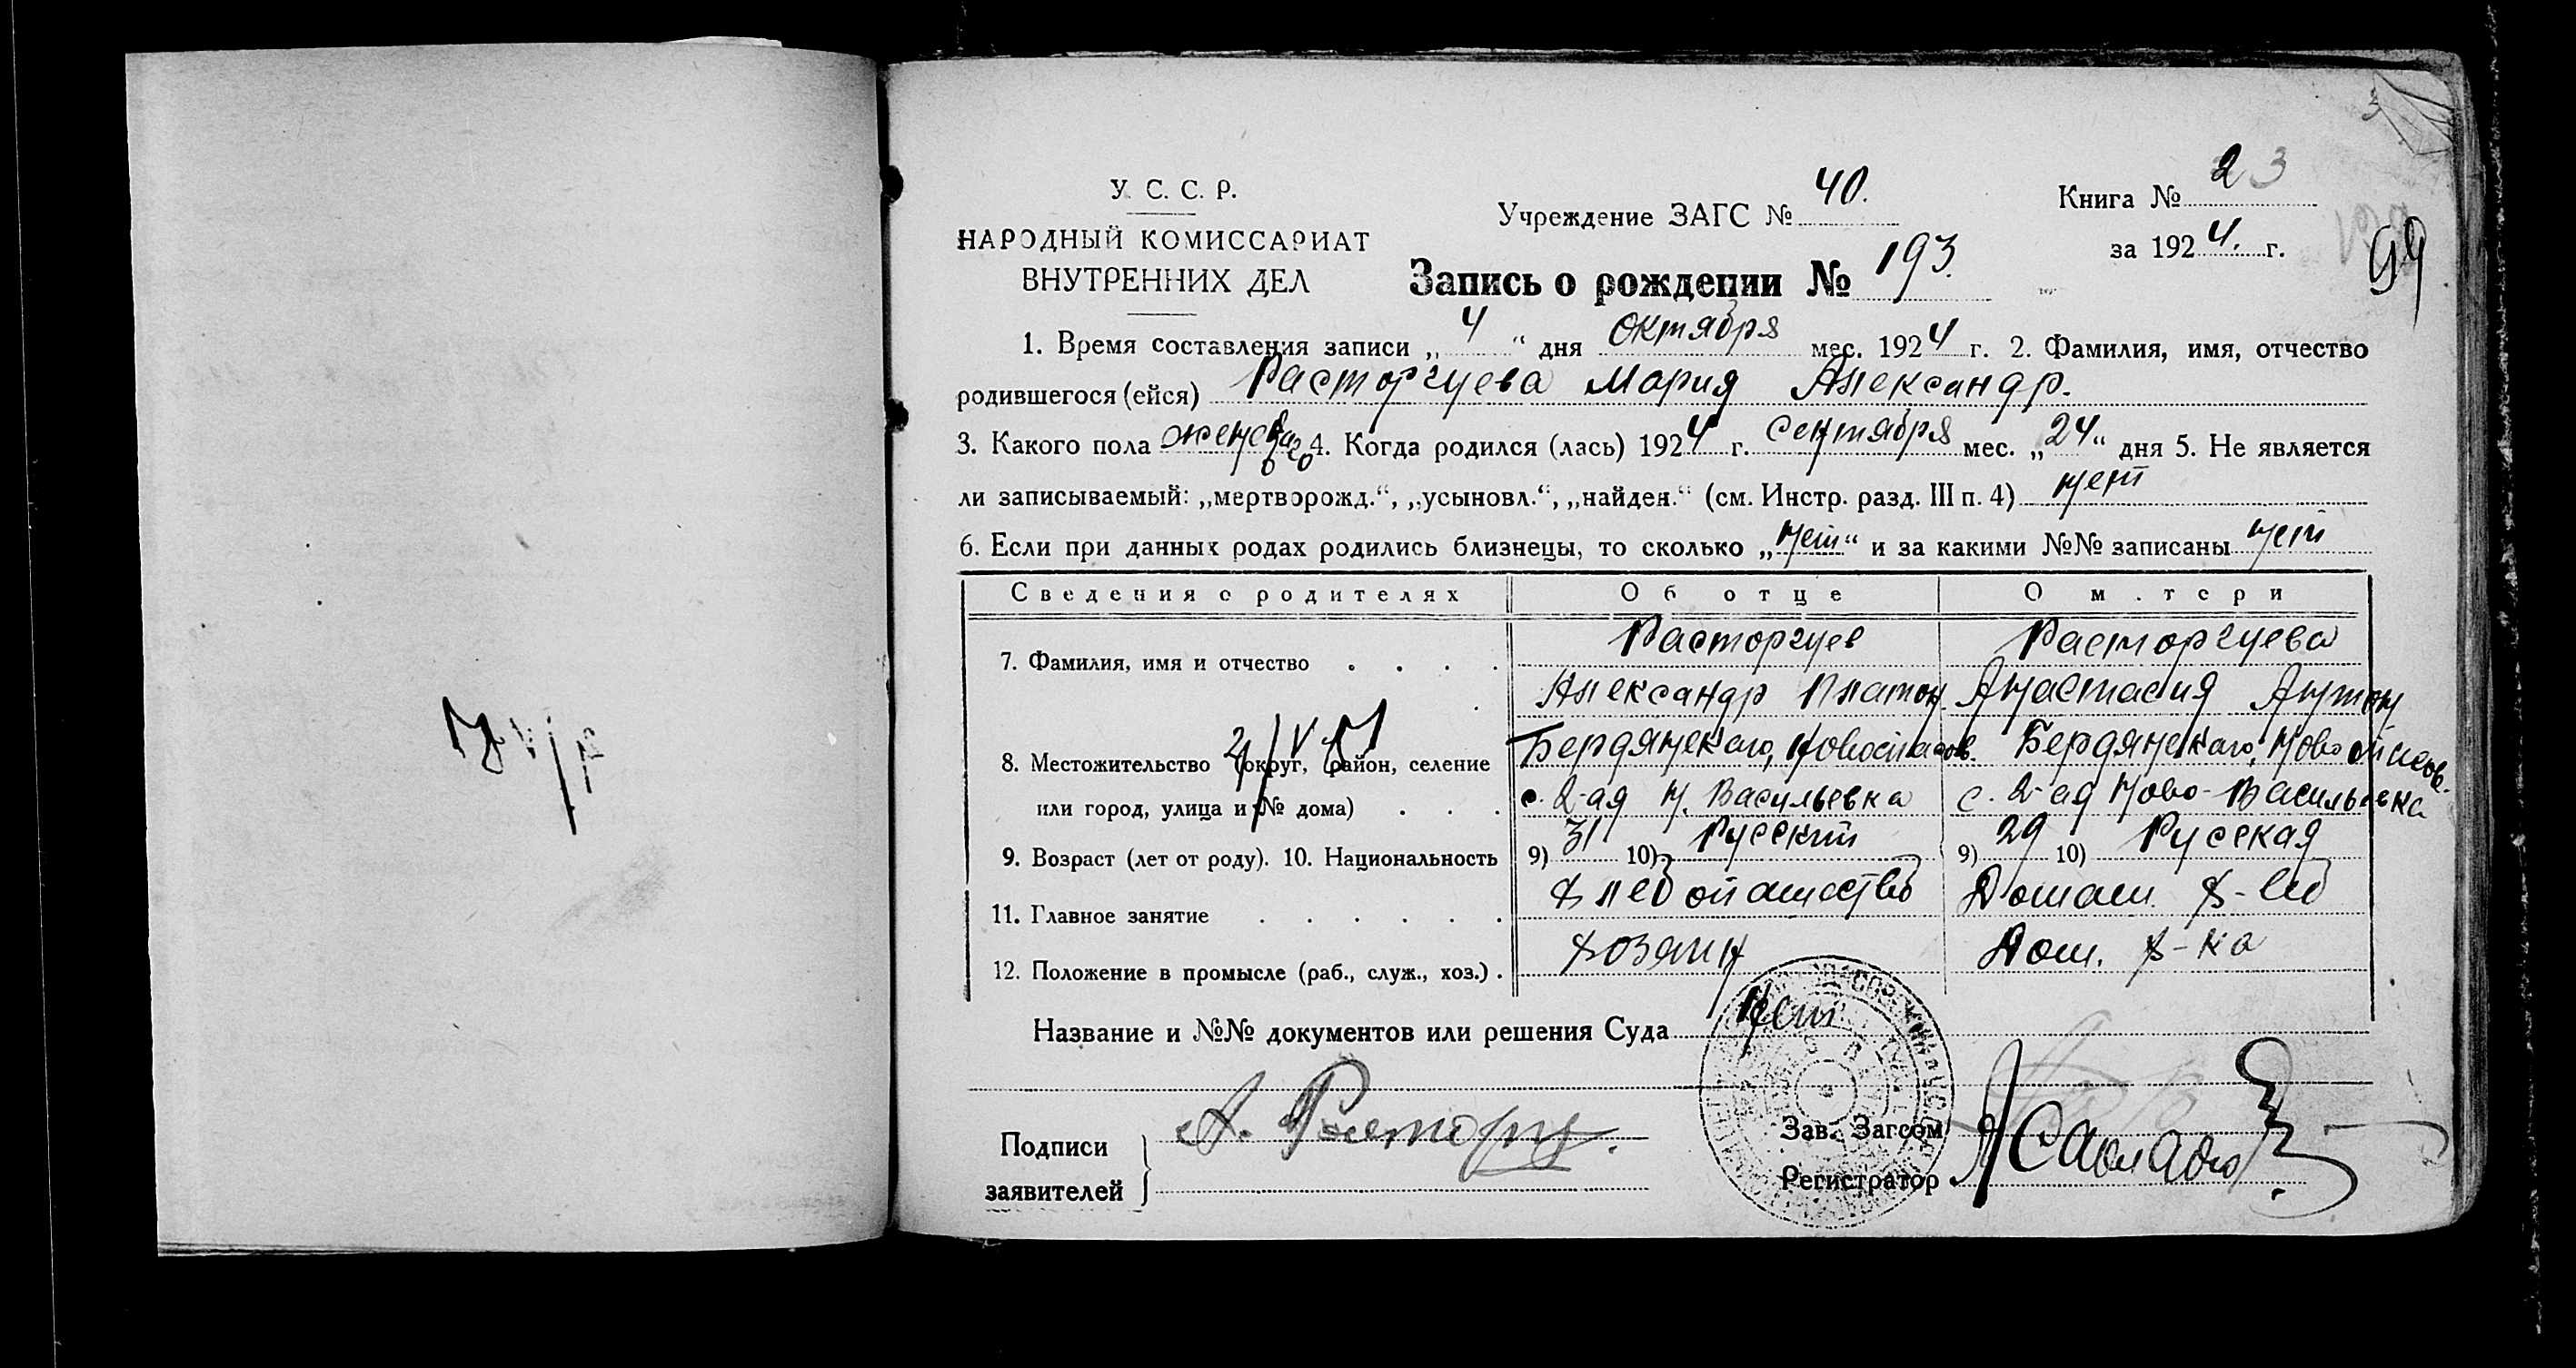 У. С. С. Р.
НАРОДНЫЙ КОМИССАРИАТ
ВНУТРЕННИХ ДЕЛ
Учреждение ЗАГС № 40.
Книга № 23
за 1924. г.
99
Запись о рождении № 193.
1. Время составления записи „4“ дня октября мес. 1924 г. 2. Фамилия, имя, отчество
родившегося (ейся) Расторгуева Мария Александр.
3. Какого пола женскаго 4. Когда родился (лась) 1924 г. сентября мес. „24“ дня 5. Не является
ли записываемый: „мертворожд.“, „усыновл.“, „найден.“ (см. Инстр. разд. III п. 4) нет
6. Если при данных родах родились близнецы, то сколько „нет“ и за какими №№ записаны нет
Сведения о родителях Об отце О м.тери
7. Фамилия, имя и отчество . . . . Расторгуев Расторгуева
Александр Платон. Анастасия Антон
8. Местожительство (округ, район, селение Бердянскаго, Новоспасов. Бердянскаго, Новоспасов.
или город, улица и № дома) . . . с. 2-ая Н. Васильевка с. 2-ая Ново-Васильевка
9. Возраст (лет от роду). 10. Национальность 9) 31 10) Русский 9) 29 10) Русская
11. Главное занятие . . . . . . Хлебопашество Домаш. х-во
12. Положение в промысле (раб., служ., хоз.) . Хозяин Дом. х-ка
Название и №№ документов или решения Суда Нет
Подписи
заявителей
А. Расторгу.
Зав. Загсом
Регистратор